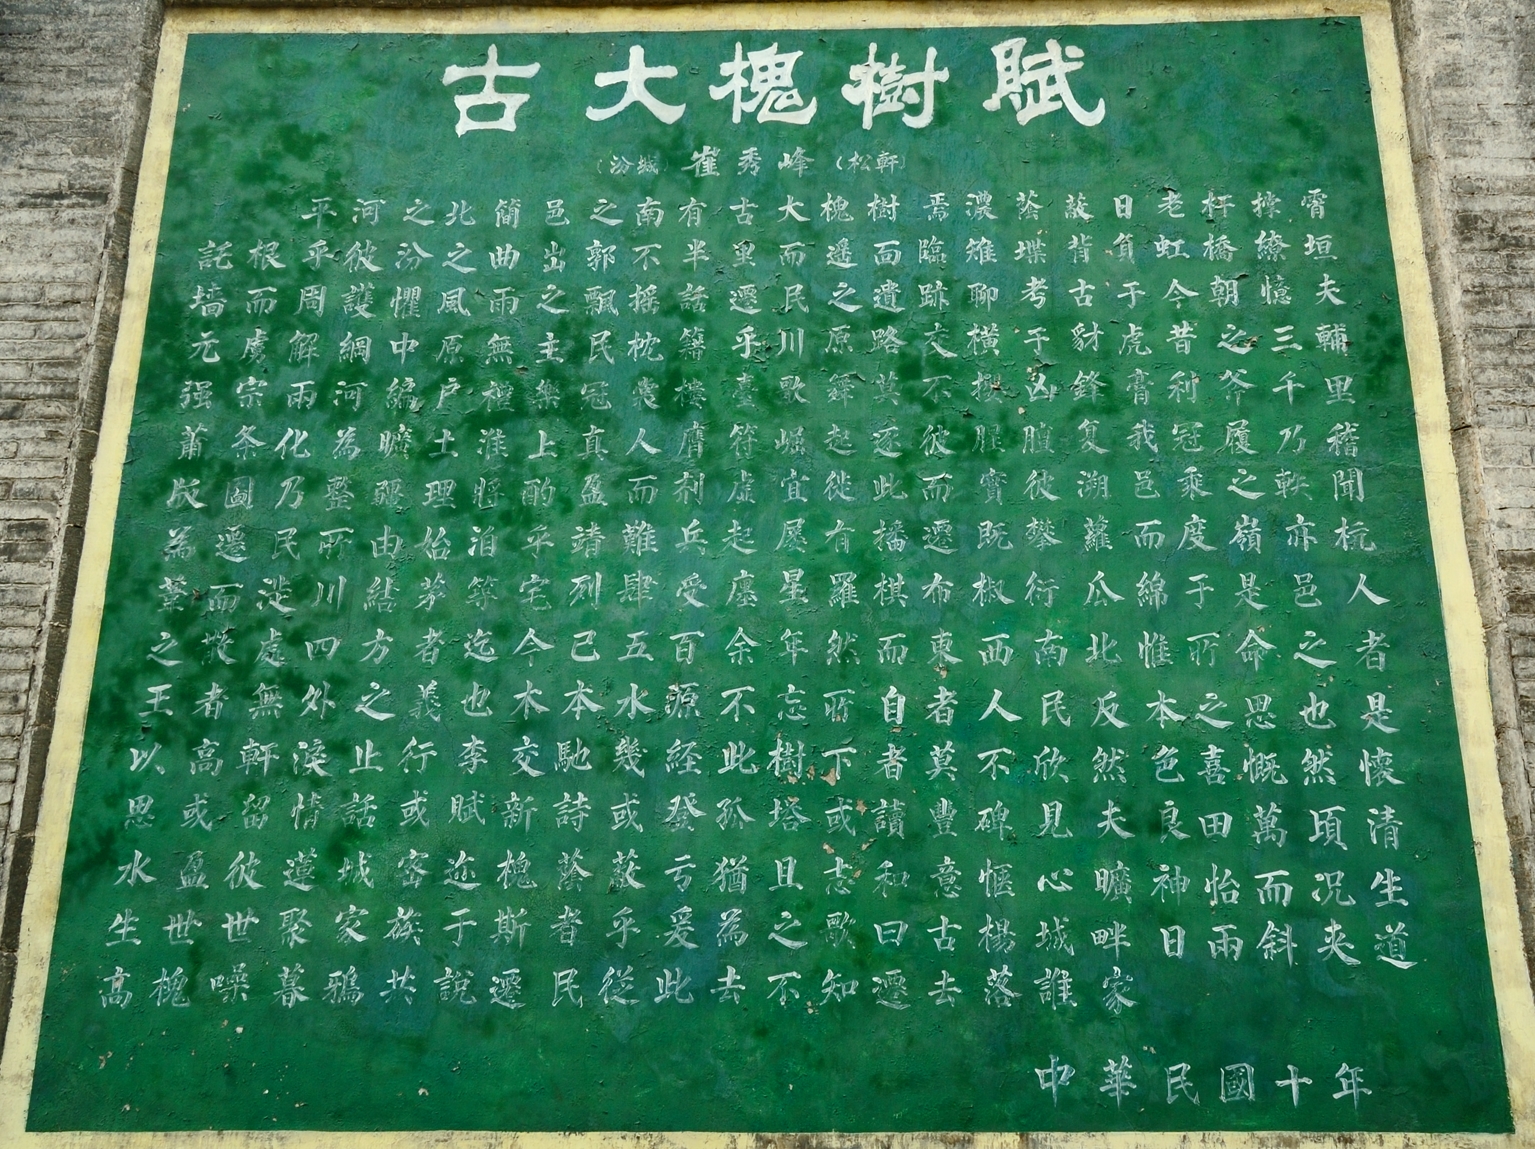 古大槐樹賦
(汾城) 崔秀峰 (松軒)
平河之北簡邑之南有古大槐樹焉濃蔭蔽日老杆捺霄
託根乎彼汾之曲出郭不半里而遥面臨雉堞背負虹橋繚垣
墻而周護懼風雨之飄摇話遷民之遺跡聊考古于今朝憶夫
元虜解綱中原無主民枕籍乎川原路交橫于豺虎昔之三輔
强宗兩河編户禮樂冠裳樓臺歌舞莫不攖凶鋒膏利斧千里
蕭条化為曠土淮上真人膺符崛起逐彼腥膻复我冠履乃稽
版圖乃整疆理酌盈而剂虚宜徙此而實彼溯邑乘之軼聞
為遷民所由始洎乎靖難兵起屡有播遷既攀蘿而度嶺亦杭
葦而涉川結茅筑宅列肆受廛星羅棋布椒衍瓜綿于是邑人
之茇處四方者迄今已五百余年然而東西南北惟所命之者
王者無外之義也木本水源不忘所自者人民反本之思也是
以高軒淚止行李交馳幾経此樹下者莫不欣然色喜慨然懷
思或留情話或賦新詩或登孤塔或讀豐碑見夫良田萬頃清
水盈彼蓮城密迩槐蔭蔽亏猶且志和意愜心曠神怡而况生
生世世聚家族于斯者乎爰為之歌曰古楊城畔日雨斜夹道
高槐噪暮鴉共說遷民從此去不知遷去落誰家
中華民國十年